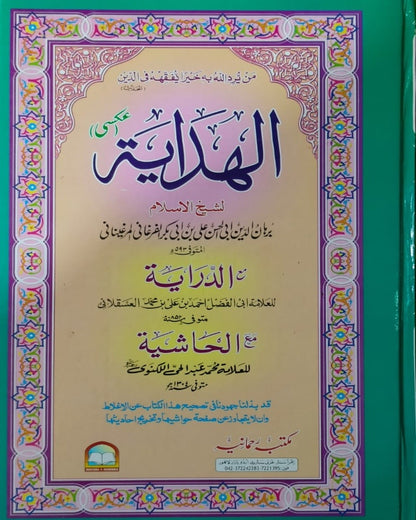 من يرد الله به خيرا يفقهه في الدين
(الحديث)
الهداية
(عکسی)
لشيخ الإسلام
برهان الدين أبي الحسن علي بن أبي بكر الفرغاني المرغيناني
المتوفى ٥٩٣ھ
مع الدراية
للعلامة أبي الفضل أحمد بن علي بن محمد العسقلاني
متوفى ٨٥٢ھ
مع الحاشية
للعلامة محمد عبد الحي اللكنوي
متوفى ١٣٠٤ھ
قد بذلنا جهودنا في تصحيح هذا الكتاب عن الاغلاط
وان لا يتجاوز عن صفحة حواشيها وتخريج احاديثها
مکتبہ رحمانیہ
اقرأ سنٹر غزنی سٹریٹ اردو بازار لاہور
فون: 042-37224228-37221395